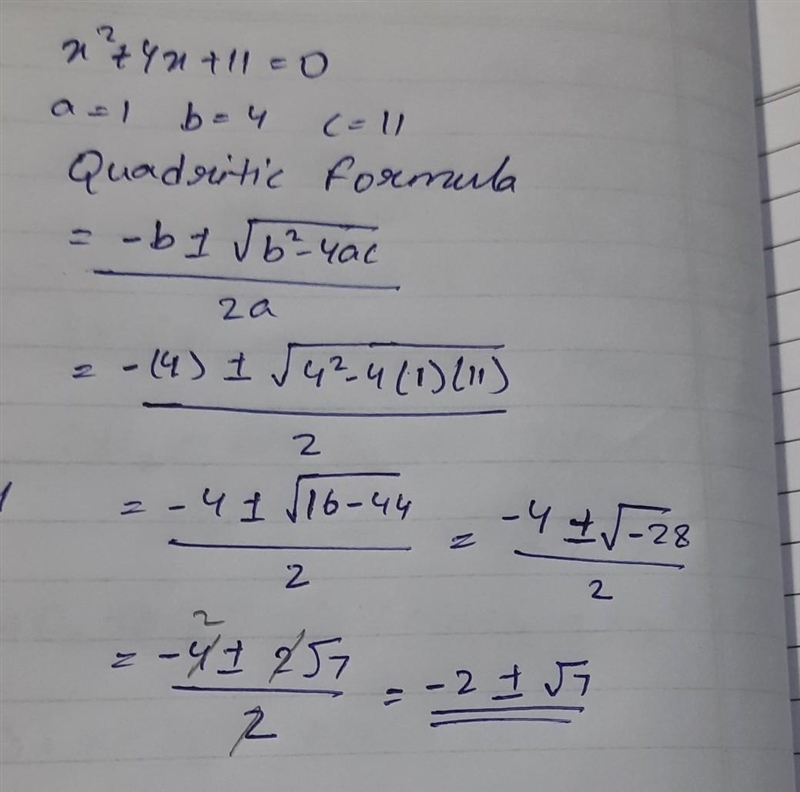 x²+4x+11=0
a=1 b=4 c=11
Quadritic formula
= -b ± √b²-4ac
2a
= -(4) ± √4²-4(1)(11)
2
= -4 ± √16-44 = -4 ± √-28
2 2
2
= -4 ± 2√7 = -2 ± √7
2